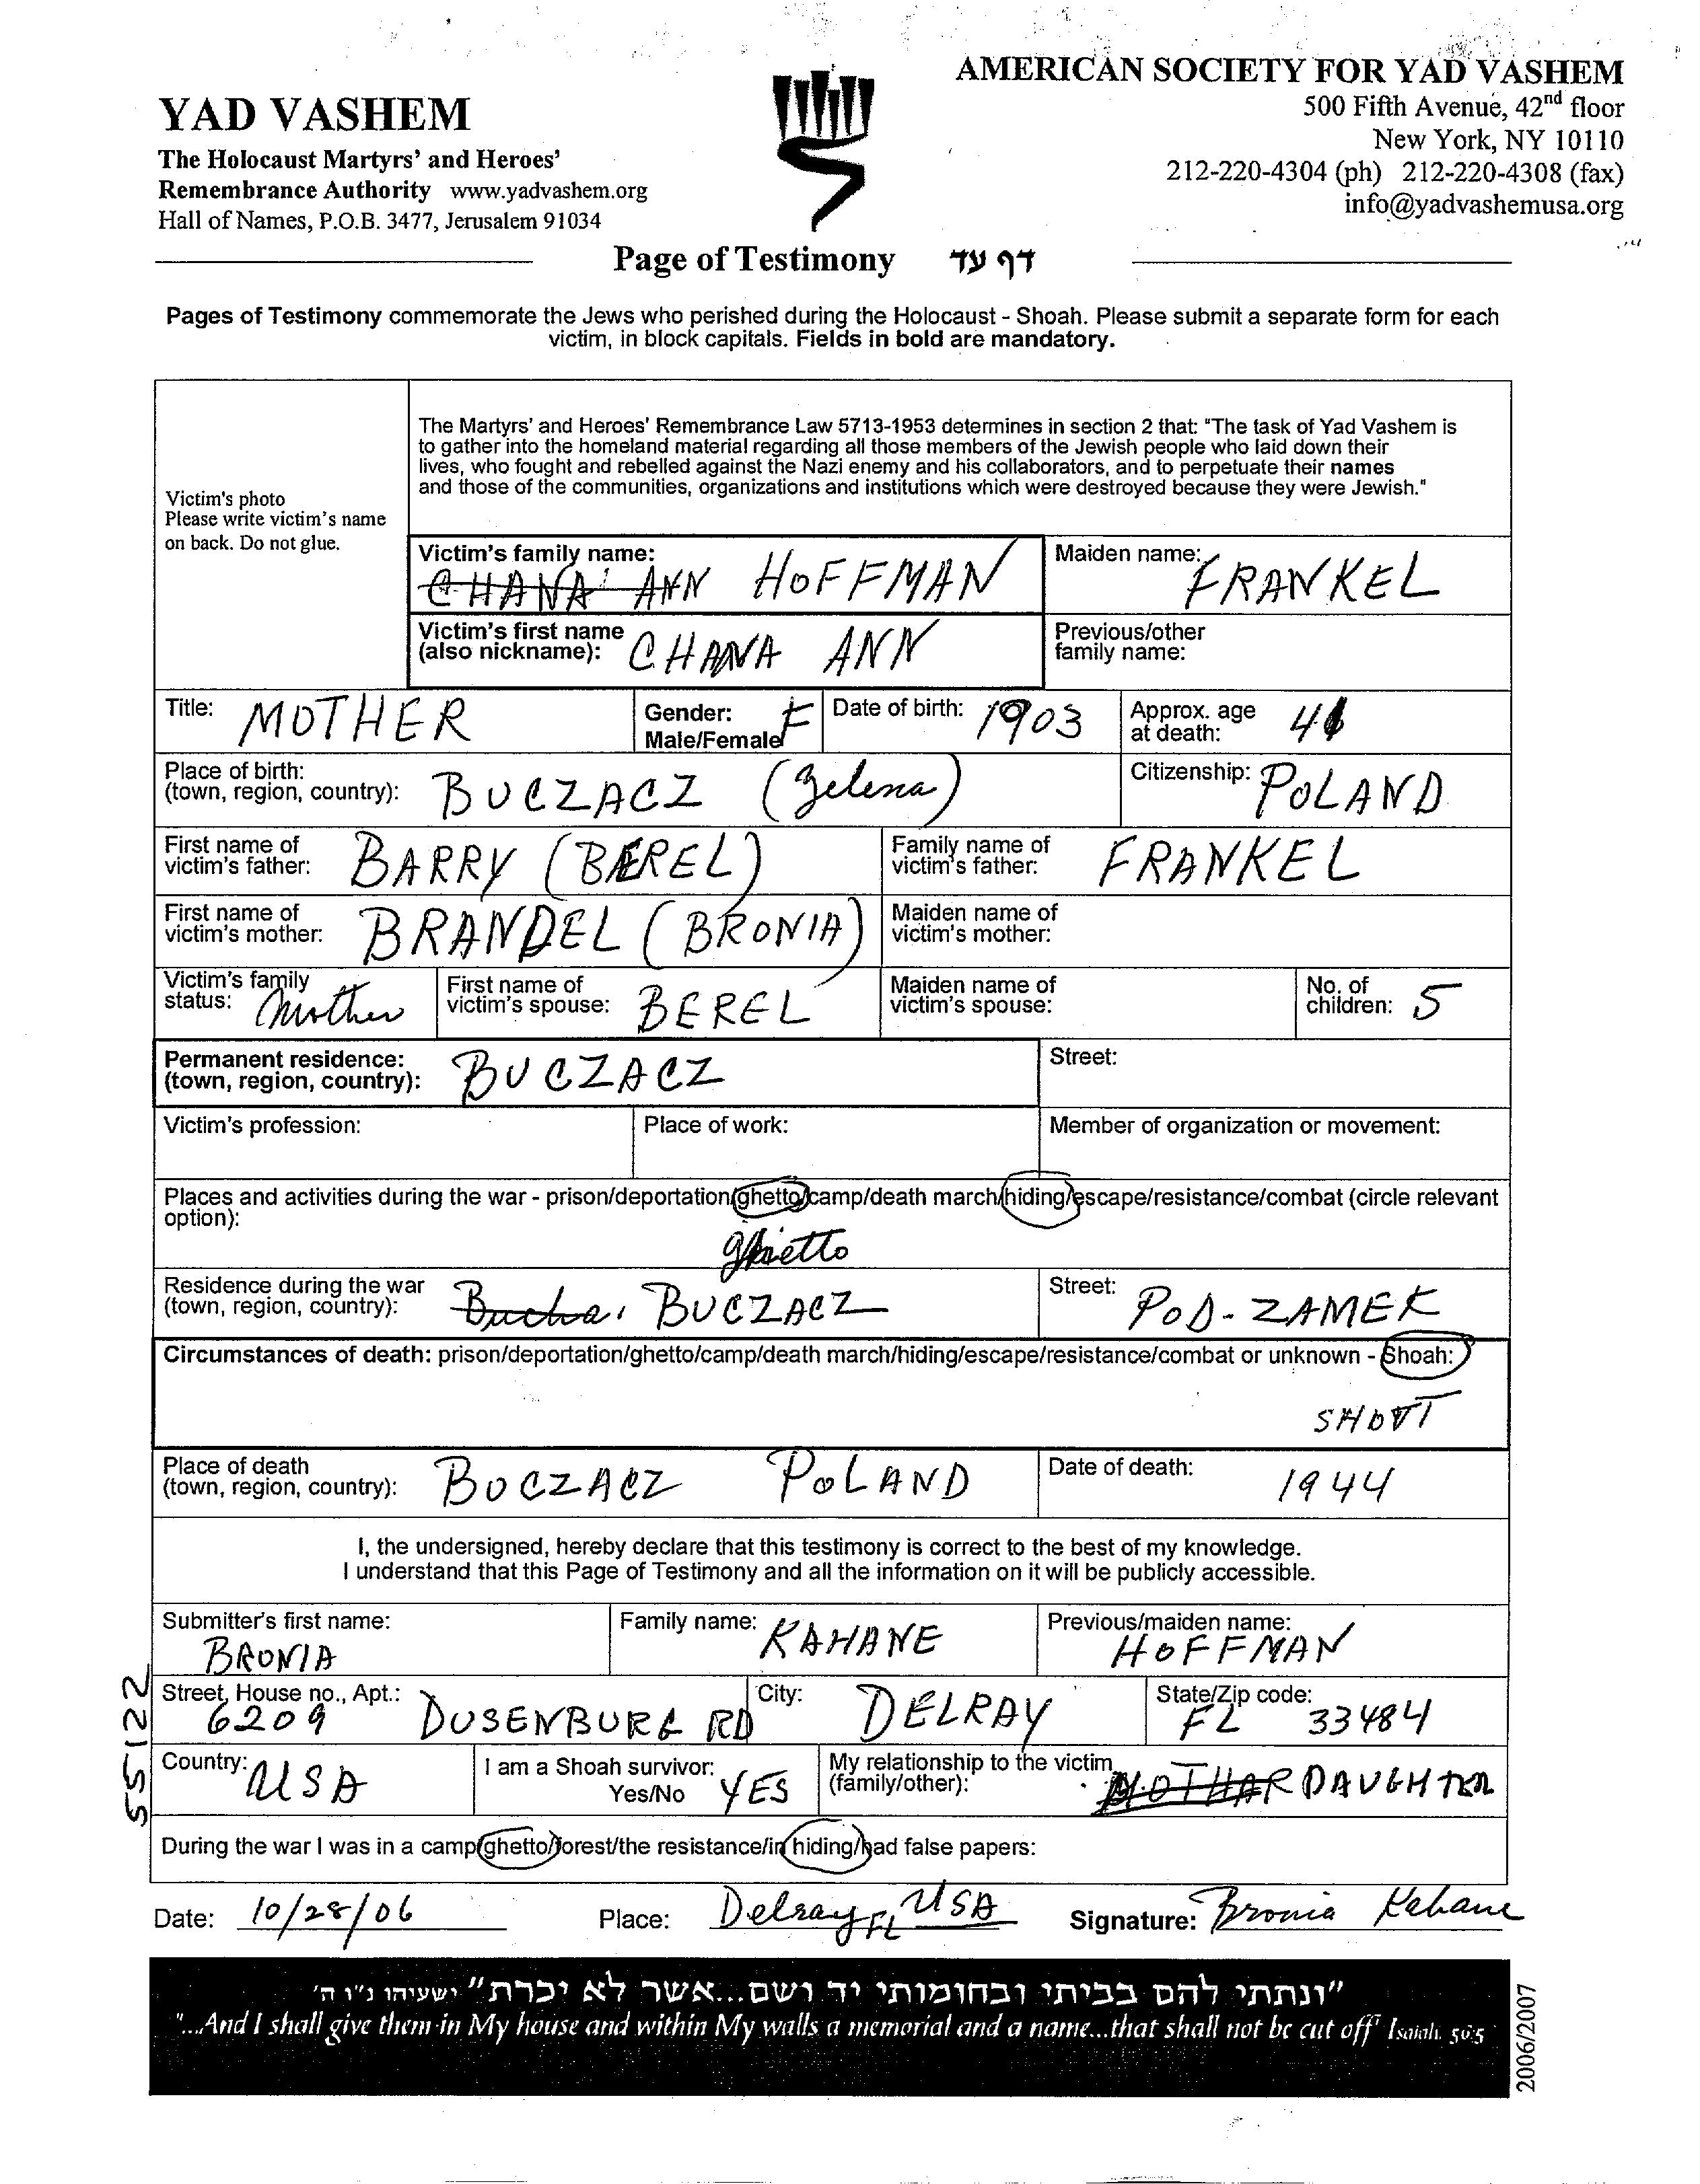 AMERICAN SOCIETY FOR YAD VASHEM
500 Fifth Avenue, 42nd floor
New York, NY 10110
212-220-4304 (ph) 212-220-4308 (fax)
info@yadvashemusa.org
YAD VASHEM
The Holocaust Martyrs' and Heroes'
Remembrance Authority www.yadvashem.org
Hall of Names, P.O.B. 3477, Jerusalem 91034
Page of Testimony דף עד
Pages of Testimony commemorate the Jews who perished during the Holocaust - Shoah. Please submit a separate form for each
victim, in block capitals. Fields in bold are mandatory.
The Martyrs' and Heroes' Remembrance Law 5713-1953 determines in section 2 that: "The task of Yad Vashem is
to gather into the homeland material regarding all those members of the Jewish people who laid down their
lives, who fought and rebelled against the Nazi enemy and his collaborators, and to perpetuate their names
and those of the communities, organizations and institutions which were destroyed because they were Jewish."
Victim's photo
Please write victim's name
on back. Do not glue.
Victim's family name: CHANA ANN HOFFMAN
Maiden name: FRANKEL
Victim's first name
(also nickname): CHANA ANN
Previous/other
family name:
Title: MOTHER
Gender:
Male/Female F
Date of birth: 1903
Approx. age
at death: 41
Place of birth:
(town, region, country): BUCZACZ (Zelena)
Citizenship: POLAND
First name of
victim's father: BARRY (BEREL)
Family name of
victim's father: FRANKEL
First name of
victim's mother: BRANDEL (BRONIA)
Maiden name of
victim's mother:
Victim's family
status: Mother
First name of
victim's spouse: BEREL
Maiden name of
victim's spouse:
No. of
children: 5
Permanent residence:
(town, region, country): BUCZACZ
Street:
Victim's profession:
Place of work:
Member of organization or movement:
Places and activities during the war - prison/deportation/ghetto/camp/death march/hiding/escape/resistance/combat (circle relevant
option):
ghietto
Residence during the war
(town, region, country): Bucha, BUCZACZ
Street: POD-ZAMEK
Circumstances of death: prison/deportation/ghetto/camp/death march/hiding/escape/resistance/combat or unknown - Shoah:
SHOTT
Place of death
(town, region, country): BUCZACZ POLAND
Date of death: 1944
I, the undersigned, hereby declare that this testimony is correct to the best of my knowledge.
I understand that this Page of Testimony and all the information on it will be publicly accessible.
Submitter's first name: BRONIA
Family name: KAHANE
Previous/maiden name: HOFFMAN
Street, House no., Apt.: 6209 DUSENBURG RD
City: DELRAY
State/Zip code: FL 33484
Country: USA
I am a Shoah survivor:
Yes/No YES
My relationship to the victim
(family/other): MOTHAR DAUGHTER
During the war I was in a camp/ghetto/forest/the resistance/in hiding/had false papers:
Date: 10/28/06 Place: Delray FL, USA Signature: Bronia Kahane
"ונתתי להם בביתי ובחומותי יד ושם...אשר לא יכרת" ישעיהו נ"ו ה'
"...And I shall give them in My house and within My walls a memorial and a name...that shall not be cut off" Isaiah. 56:5
55122
2006/2007